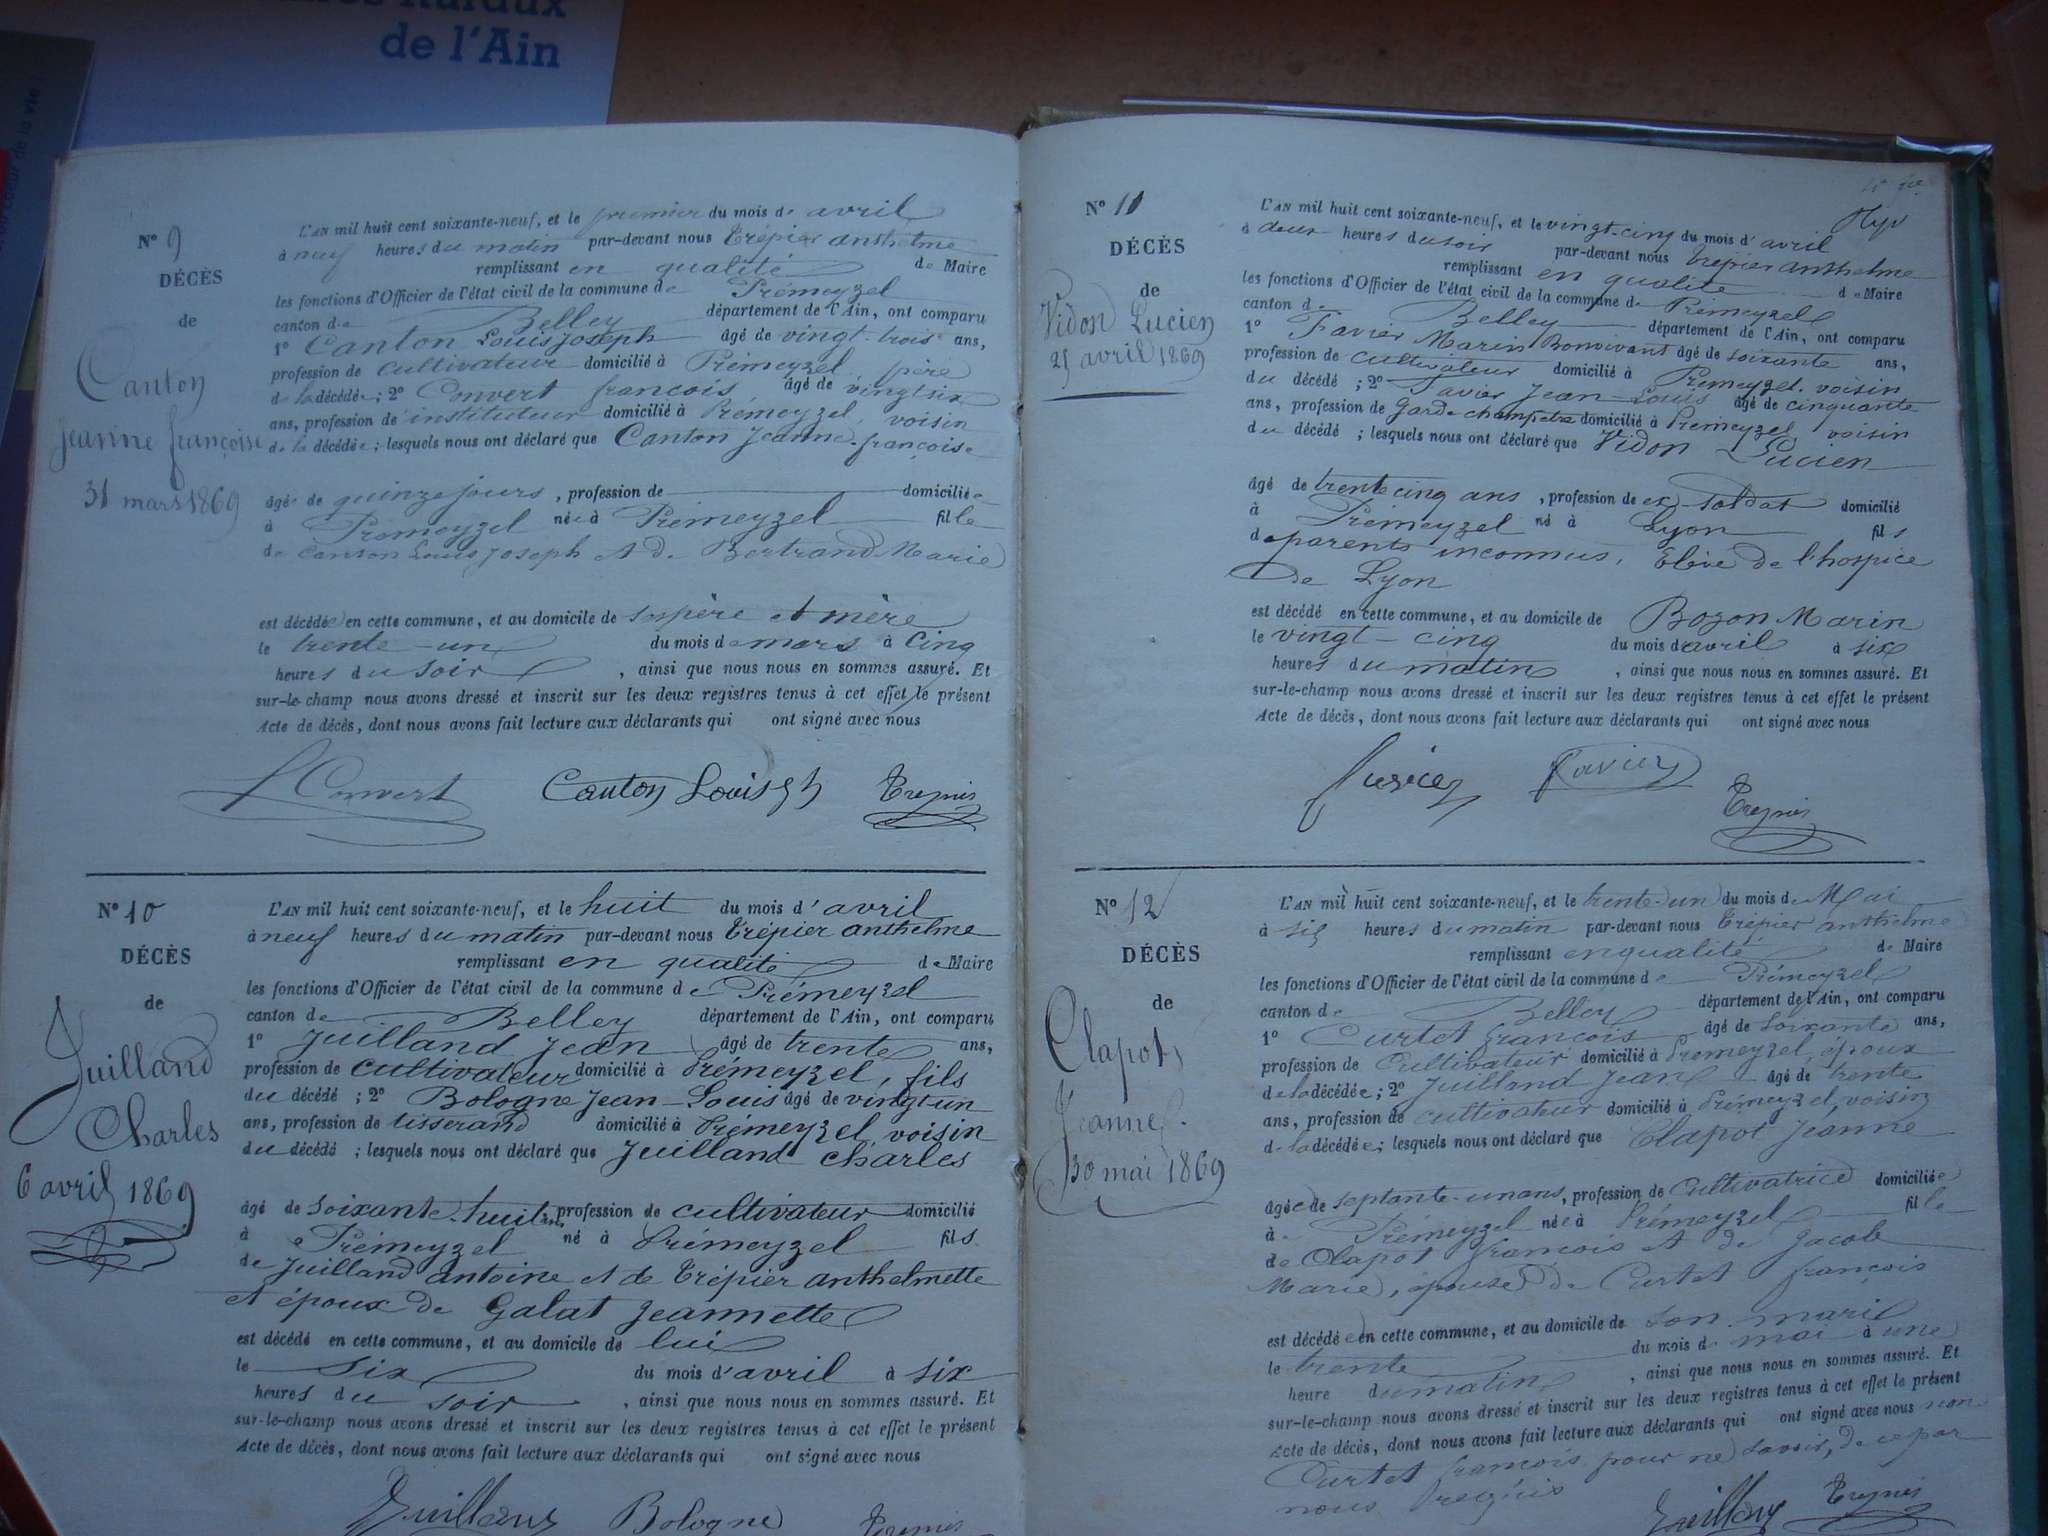 de l'Ain
N° 9
DÉCÈS
de
Canton
Jeanne françoise
31 mars 1869
L'AN mil huit cent soixante-neuf, et le premier du mois de avril
à neuf heures du matin par-devant nous Trépier anthelme
remplissant en qualité de Maire
les fonctions d'Officier de l'état civil de la commune de Prémeyzel
canton de Belley département de l'Ain, ont comparu
1° Canton Louis Joseph âgé de vingt-trois ans,
profession de cultivateur domicilié à Prémeyzel père
de la décédée; 2° Convert françois âgé de vingt six
ans, profession de instituteur domicilié à Prémeyzel, voisin
de la décédée; lesquels nous ont déclaré que Canton Jeanne-françoise
âgée de quinze jours, profession de domiciliée
à Prémeyzel née à Prémeyzel fille
de Canton Louis Joseph et de Bertrand Marie
est décédée en cette commune, et au domicile de ses père et mère
le trente-un du mois de mars à cinq
heures du soir, ainsi que nous nous en sommes assuré. Et
sur-le-champ nous avons dressé et inscrit sur les deux registres tenus à cet effet le présent
Acte de décès, dont nous avons fait lecture aux déclarants qui ont signé avec nous
Convert Canton Louis
N° 10
DÉCÈS
de
Juilland
Charles
6 avril 1869
L'AN mil huit cent soixante-neuf, et le huit du mois d'avril
à neuf heures du matin par-devant nous Trépier anthelme
remplissant en qualité de Maire
les fonctions d'Officier de l'état civil de la commune de Prémeyzel
canton de Belley département de l'Ain, ont comparu
1° Juilland Jean âgé de trente ans,
profession de cultivateur domicilié à Prémeyzel, fils
du décédé; 2° Bologne Jean-Louis âgé de vingt un
ans, profession de tisserand domicilié à Prémeyzel, voisin
du décédé; lesquels nous ont déclaré que Juilland Charles
âgé de soixante-huit ans, profession de cultivateur domicilié
à Prémeyzel né à Prémeyzel fils
de Juilland antoine et de Trépier anthelmette
et époux de Galat Jeannette
est décédé en cette commune, et au domicile de lui
le six du mois d'avril à six
heures du soir, ainsi que nous nous en sommes assuré. Et
sur-le-champ nous avons dressé et inscrit sur les deux registres tenus à cet effet le présent
Acte de décès, dont nous avons fait lecture aux déclarants qui ont signé avec nous
Juilland Bologne
N° 11
DÉCÈS
de
Vidon Lucien
25 avril 1869
L'AN mil huit cent soixante-neuf, et le vingt-cinq du mois d'avril
à deux heures du soir par-devant nous Trépier anthelme
remplissant en qualité de Maire
les fonctions d'Officier de l'état civil de la commune de Prémeyzel
canton de Belley département de l'Ain, ont comparu
1° Favier Marin Bonvivant âgé de soixante ans,
profession de cultivateur domicilié à Prémeyzel voisin
du décédé; 2° Favier Jean-Louis âgé de cinquante
ans, profession de garde champetre domicilié à Prémeyzel voisin
du décédé; lesquels nous ont déclaré que Vidon Lucien
âgé de trente cinq ans, profession de ex-soldat domicilié
à Prémeyzel né à Lyon fils
de parents inconnus, Elève de l'hospice
de Lyon
est décédé en cette commune, et au domicile de Bozon Marin
le vingt-cinq du mois d'avril à six
heures du matin, ainsi que nous nous en sommes assuré. Et
sur-le-champ nous avons dressé et inscrit sur les deux registres tenus à cet effet le présent
Acte de décès, dont nous avons fait lecture aux déclarants qui ont signé avec nous
Favier
N° 12
DÉCÈS
de
Clapot
Jeanne
30 mai 1869
L'AN mil huit cent soixante-neuf, et le trente-un du mois de Mai
à six heures du matin par-devant nous Trépier anthelme
remplissant en qualité de Maire
les fonctions d'Officier de l'état civil de la commune de Prémeyzel
canton de Belley département de l'Ain, ont comparu
1° Curtet françois âgé de soixante ans,
profession de Cultivateur domicilié à Prémeyzel, époux
de la décédée; 2° Juilland Jean âgé de trente
ans, profession de cultivateur domicilié à Prémeyzel, voisin
de la décédée; lesquels nous ont déclaré que Clapot Jeanne
âgée de septante-un ans, profession de Cultivatrice domiciliée
à Prémeyzel née à Prémeyzel fille
de Clapot françois et de Jacob
Marie, épouse de Curtet françois
est décédée en cette commune, et au domicile de son mari
le trente du mois de mai à une
heure du matin, ainsi que nous nous en sommes assuré. Et
sur-le-champ nous avons dressé et inscrit sur les deux registres tenus à cet effet le présent
Acte de décès, dont nous avons fait lecture aux déclarants qui ont signé avec nous non
Curtet françois pour ne savoir, de ce par
nous requis
Juilland